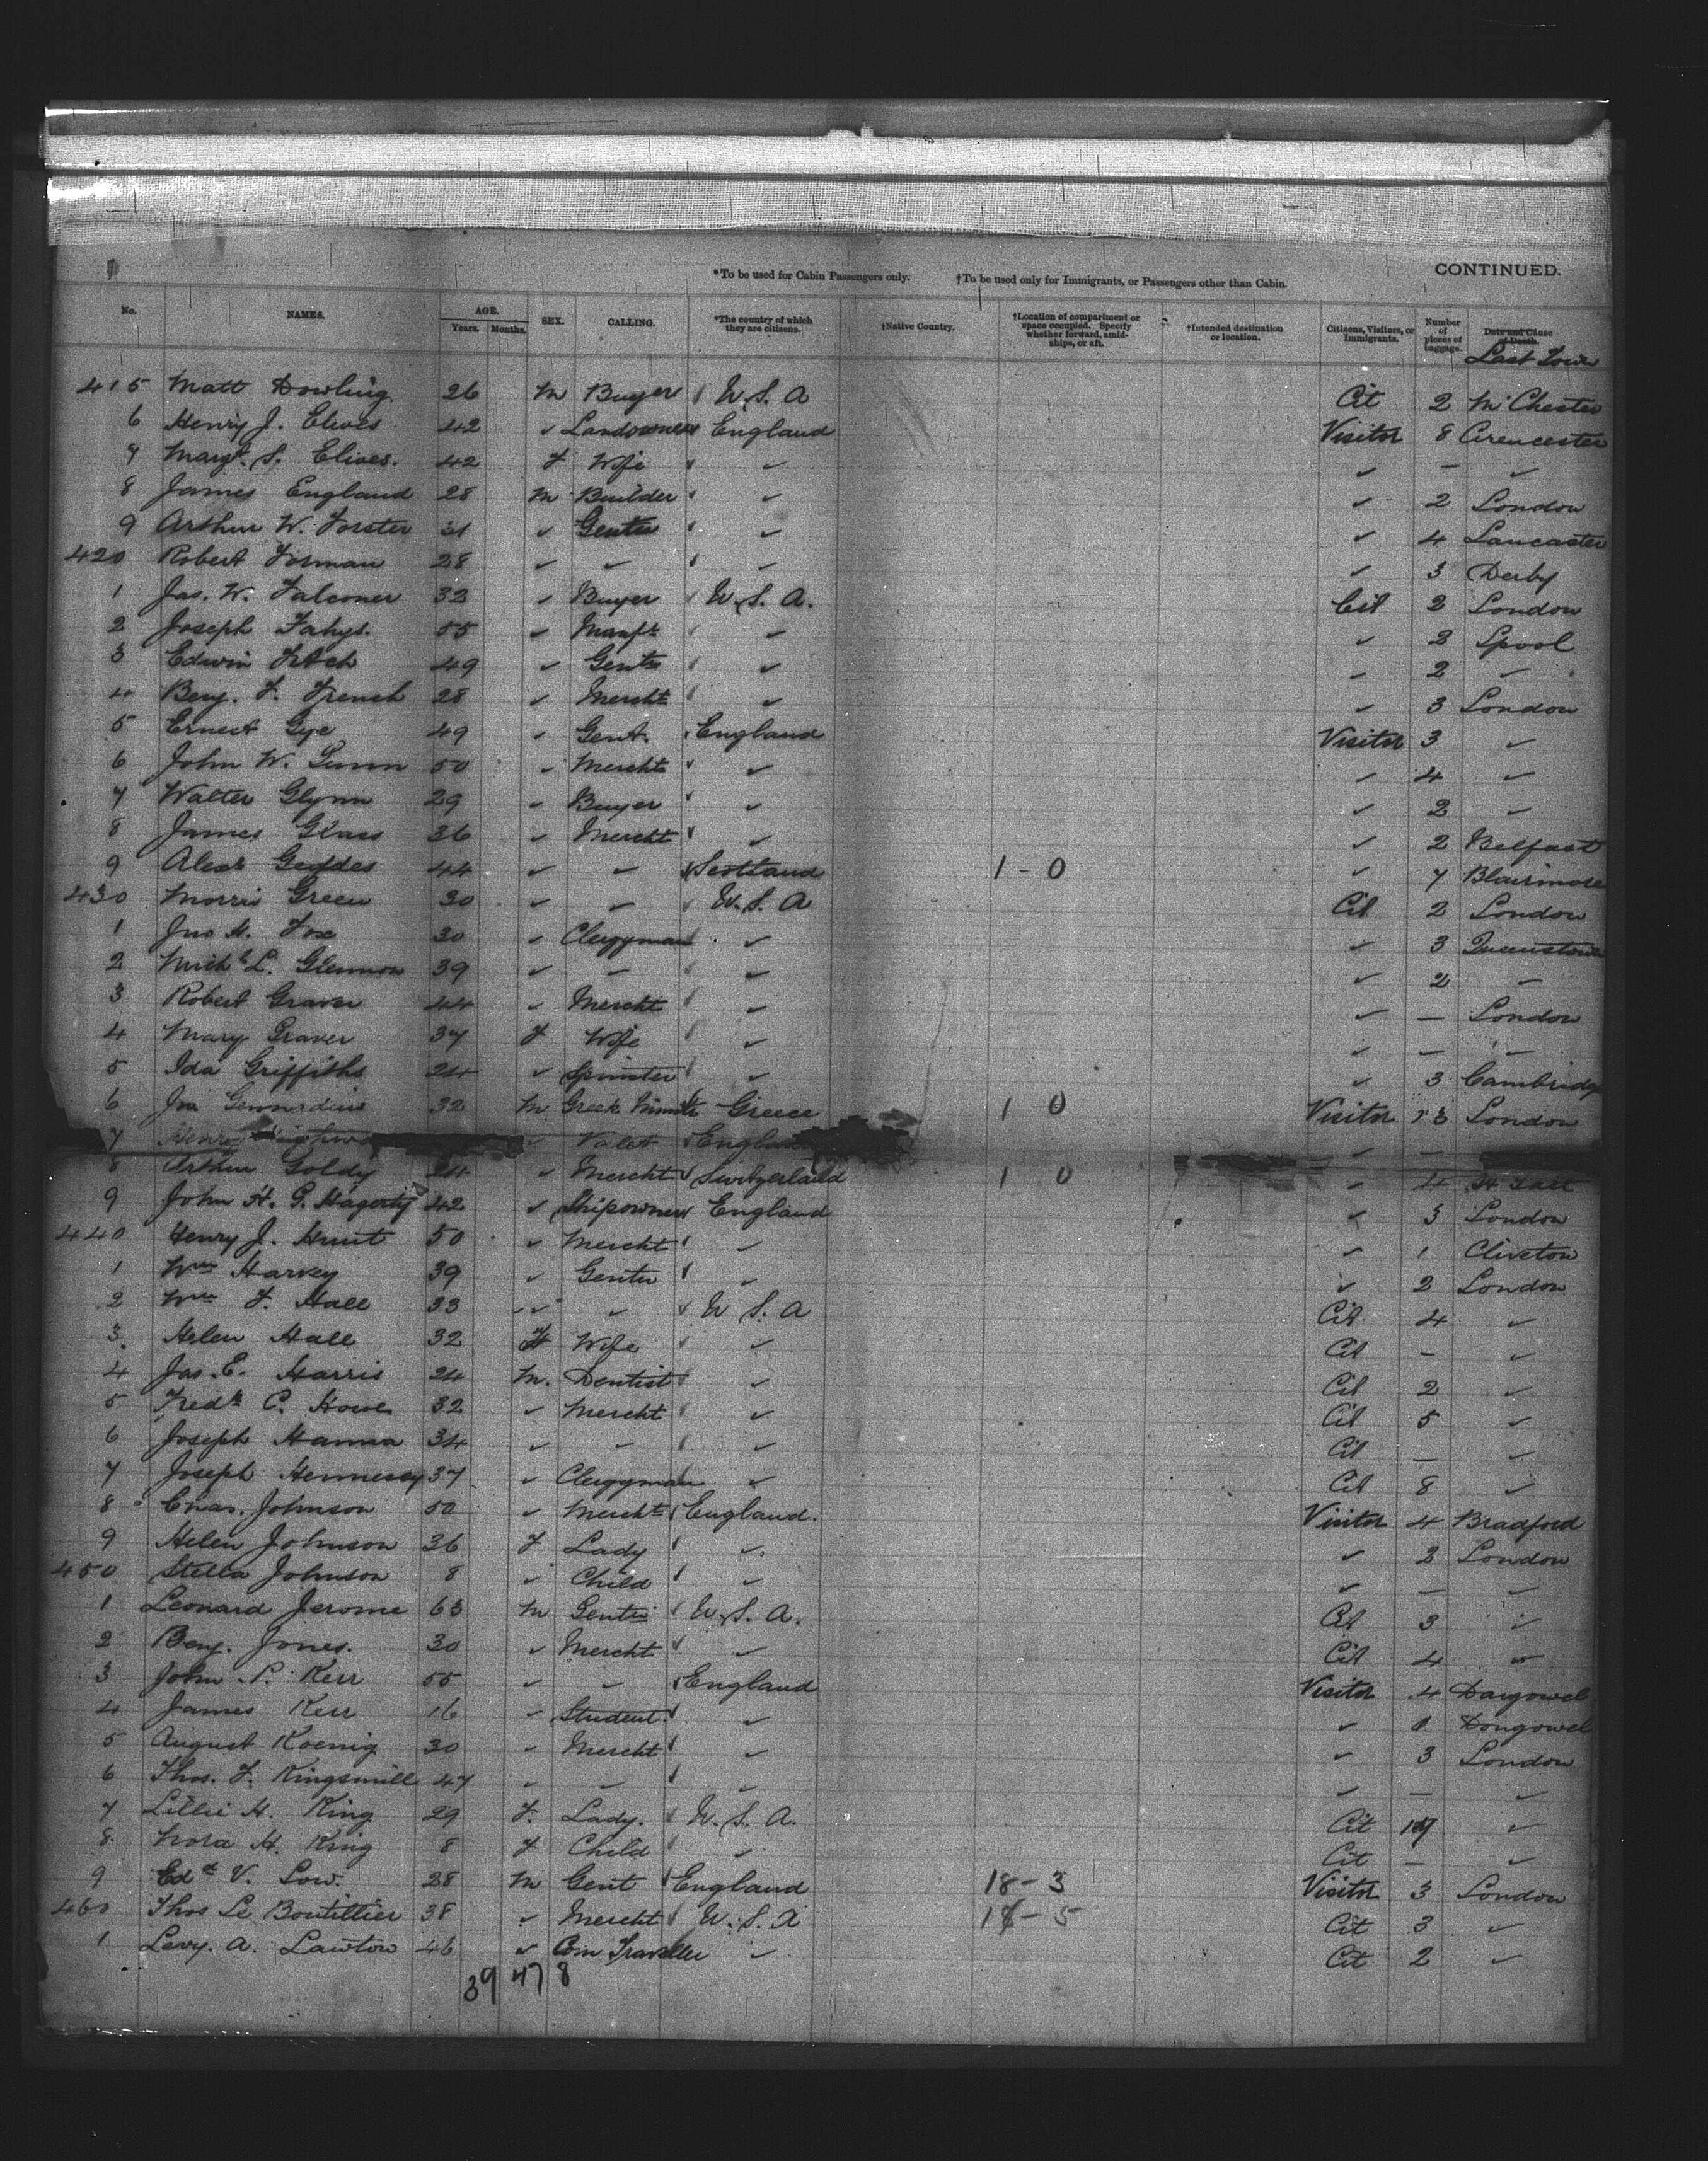 CONTINUED.
*To be used for Cabin Passengers only. †To be used only for Immigrants, or Passengers other than Cabin.
No. NAMES. AGE. Years. Months. SEX. CALLING. *The country of which they are citizens. †Native Country. †Location of compartment or space occupied. Specify whether forward, amidships, or aft. †Intended destination or location. Citizens, Visitors, or Immigrants. Number of pieces of baggage. Date and Cause of Death. Last Town
415 Matt Dowling 26 M Buyer U.S.A Cit 2 M'Chester
6 Henry J. Elwes 42 ✓ Landowner England Visitor 8 Cirencester
7 Margt. S. Elwes. 42 F Wife ✓ ✓ — ✓
8 James England 28 M Builder ✓ ✓ 2 London
9 Arthur W. Forster 21 ✓ Gentn ✓ ✓ 4 Lancaster
420 Robert Forman 28 ✓ ✓ ✓ ✓ 3 Derby
1 Jas. W. Falconer 32 ✓ Buyer U.S.A. Cit 2 London
2 Joseph Fahys. 55 ✓ Manfr ✓ ✓ 3 Lpool
3 Edwin Fitch 49 ✓ Gentn ✓ ✓ 2 ✓
4 Benj. F. French 28 ✓ Mercht ✓ ✓ 3 London
5 Ernest Gye 49 ✓ Gent. England Visitor 3 ✓
6 John W. Gunn 50 ✓ Mercht ✓ ✓ 4 ✓
7 Walter Glynn 29 ✓ Buyer ✓ ✓ 2 ✓
8 James Glass 36 ✓ Mercht ✓ ✓ 2 Belfast
9 Alexr Geddes 44 ✓ ✓ Scotland 1-0 ✓ 7 Blairmore
430 Morris Green 30 ✓ ✓ U.S.A Cit 2 London
1 Jno H. Fox 30 ✓ Clergyman ✓ ✓ 3 Queenstown
2 Michl L. Glennon 39 ✓ ✓ ✓ ✓ 2 ✓
3 Robert Graver 44 ✓ Mercht ✓ ✓ — London
4 Mary Graver 37 F Wife ✓ ✓ — ✓
5 Ida Griffiths 24 ✓ Spinster ✓ ✓ 3 Cambridge
6 Jn Gennadius 32 M Greek Ministr Greece 1-0 Visitor 13 London
7 Henry ✓ Valet England ✓ —
8 Arthur Goldy 24 ✓ Mercht Switzerland 1 0 ✓ 4 St Gall
9 John H. G. Hagerty 42 ✓ Shipowner England ✓ 3 London
440 Henry J. Hunt 50 ✓ Mercht ✓ ✓ 1 Cliveton
1 Wm Harvey 39 ✓ Gentn ✓ ✓ 2 London
2 Wm F. Hall 33 ✓ ✓ U S. A Cit 4 ✓
3 Helen Hall 32 F Wife ✓ Cit — ✓
4 Jas. E. Harris 24 M. Dentist ✓ Cit 2 ✓
5 Fredk C. Howe 32 ✓ Mercht ✓ Cit 5 ✓
6 Joseph Hanna 34 ✓ ✓ ✓ Cit — ✓
7 Joseph Hennessy 37 ✓ Clergyman ✓ Cit 8 ✓
8 Chas. Johnson 50 ✓ Mercht England. Visitor 4 Bradford
9 Helen Johnson 36 F Lady ✓ ✓ 2 London
450 Stella Johnson 8 ✓ Child ✓ ✓ — ✓
1 Leonard Jerome 63 M Gentn U.S.A. Cit 3 ✓
2 Benj. Jones. 30 ✓ Mercht ✓ Cit 4 ✓
3 John P. Kerr 55 ✓ ✓ England Visitor 4 Dargowel
4 James Kerr 16 ✓ Student ✓ ✓ 1 Dongowel
5 August Koenig 30 ✓ Mercht ✓ ✓ 3 London
6 Thos. F. Kingsmill 47 ✓ ✓ ✓ ✓ — ✓
7 Lillie H. King 29 F. Lady. U.S.A. Cit 17 ✓
8 Nora H. King 8 F Child ✓ Cit — ✓
9 Edd V. Low. 28 M Gent England 18-3 Visitor 3 London
460 Thos Le Boutillier 38 ✓ Mercht U.S.A 18-5 Cit 3 ✓
1 Levy. A. Lawton 46 ✓ Com Traveller ✓ Cit 2 ✓
39 47 8